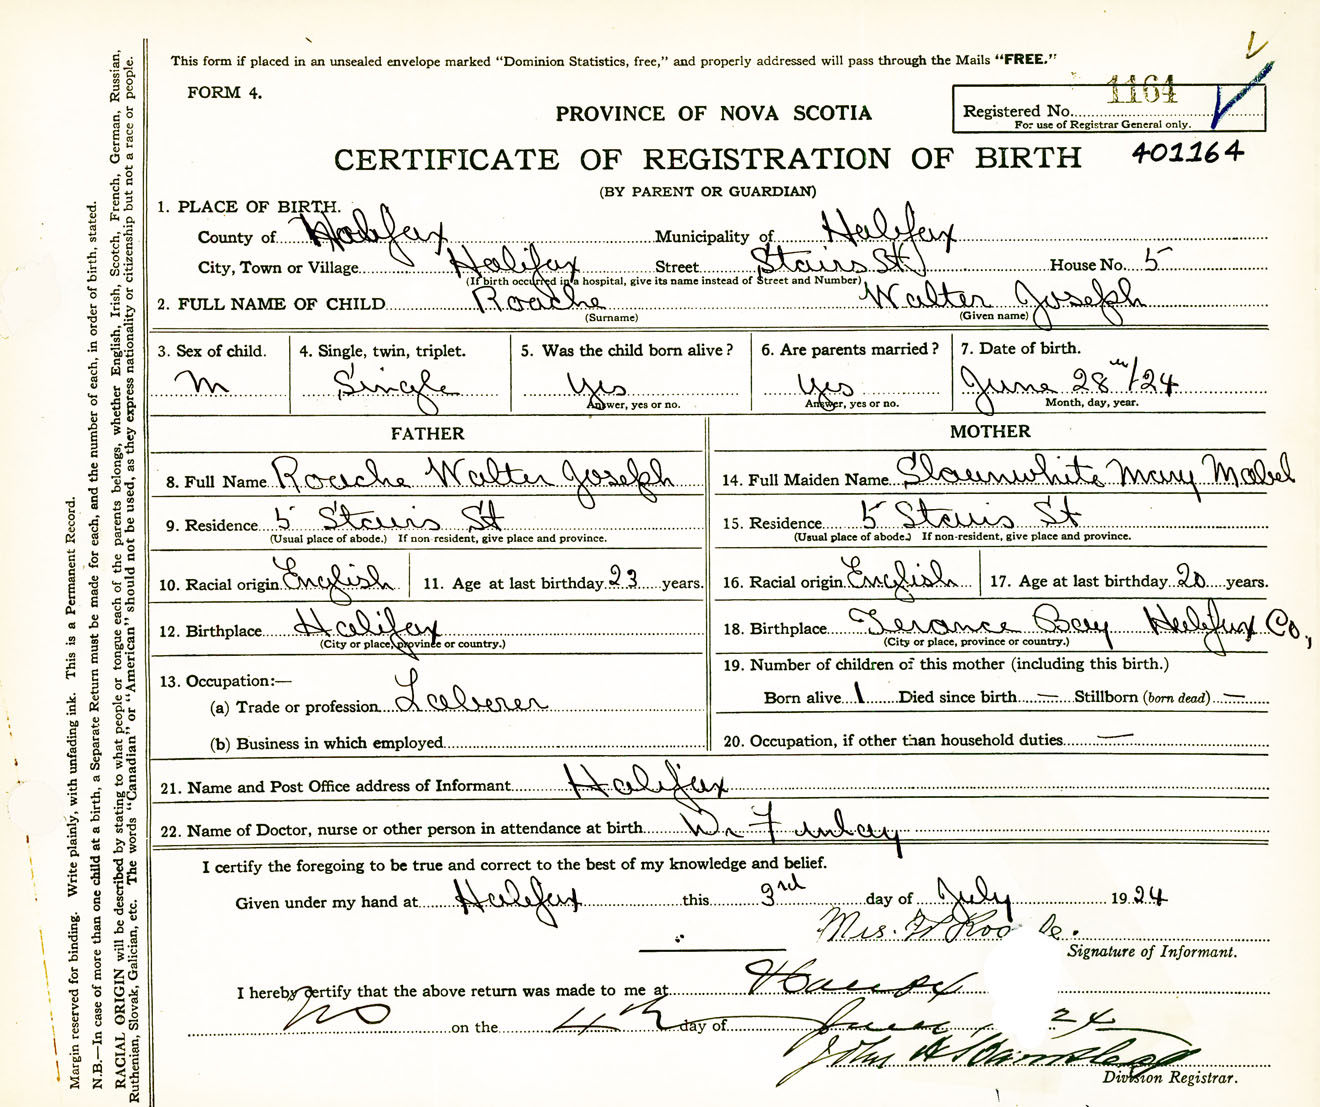 This form if placed in an unsealed envelope marked "Dominion Statistics, free," and properly addressed will pass through the Mails "FREE."
FORM 4.
PROVINCE OF NOVA SCOTIA
1164
Registered No.
For use of Registrar General only.
CERTIFICATE OF REGISTRATION OF BIRTH 401164
(BY PARENT OR GUARDIAN)
1. PLACE OF BIRTH.
County of Halifax Municipality of Halifax
City, Town or Village Halifax Street Stairs St House No. 5
(If birth occurred in a hospital, give its name instead of Street and Number)
2. FULL NAME OF CHILD Roache Walter Joseph
(Surname) (Given name)
3. Sex of child. 4. Single, twin, triplet. 5. Was the child born alive? 6. Are parents married? 7. Date of birth.
M Single Yes Yes June 28th/24
Answer, yes or no. Answer, yes or no. Month, day, year.
FATHER MOTHER
8. Full Name Roache Walter Joseph 14. Full Maiden Name Slaunwhite Mary Mabel
9. Residence 5 Stairs St 15. Residence 5 Stairs St
(Usual place of abode.) If non-resident, give place and province. (Usual place of abode.) If non-resident, give place and province.
10. Racial origin English 11. Age at last birthday 23 years. 16. Racial origin English 17. Age at last birthday 20 years.
12. Birthplace Halifax 18. Birthplace Terance Bay Halifax Co,
(City or place, province or country.) (City or place, province or country.)
13. Occupation:— 19. Number of children of this mother (including this birth.)
(a) Trade or profession Laberer Born alive 1 Died since birth — Stillborn (born dead) —
(b) Business in which employed 20. Occupation, if other than household duties —
21. Name and Post Office address of Informant Halifax
22. Name of Doctor, nurse or other person in attendance at birth Dr Finlay
I certify the foregoing to be true and correct to the best of my knowledge and belief.
Given under my hand at Halifax this 3rd day of July 1924
Mrs. W Roache.
Signature of Informant.
I hereby certify that the above return was made to me at Halifax
NS on the 4th day of 24
John
Division Registrar.
Margin reserved for binding. Write plainly, with unfading ink. This is a Permanent Record.
N.B.—In case of more than one child at a birth, a Separate Return must be made for each, and the number of each, in order of birth, stated.
RACIAL ORIGIN will be described by stating to what people or tongue each of the parents belongs, whether English, Irish, Scotch, French, German, Russian,
Ruthenian, Slovak, Galician, etc. The words "Canadian" or "American" should not be used, as they express nationality or citizenship but not a race or people.